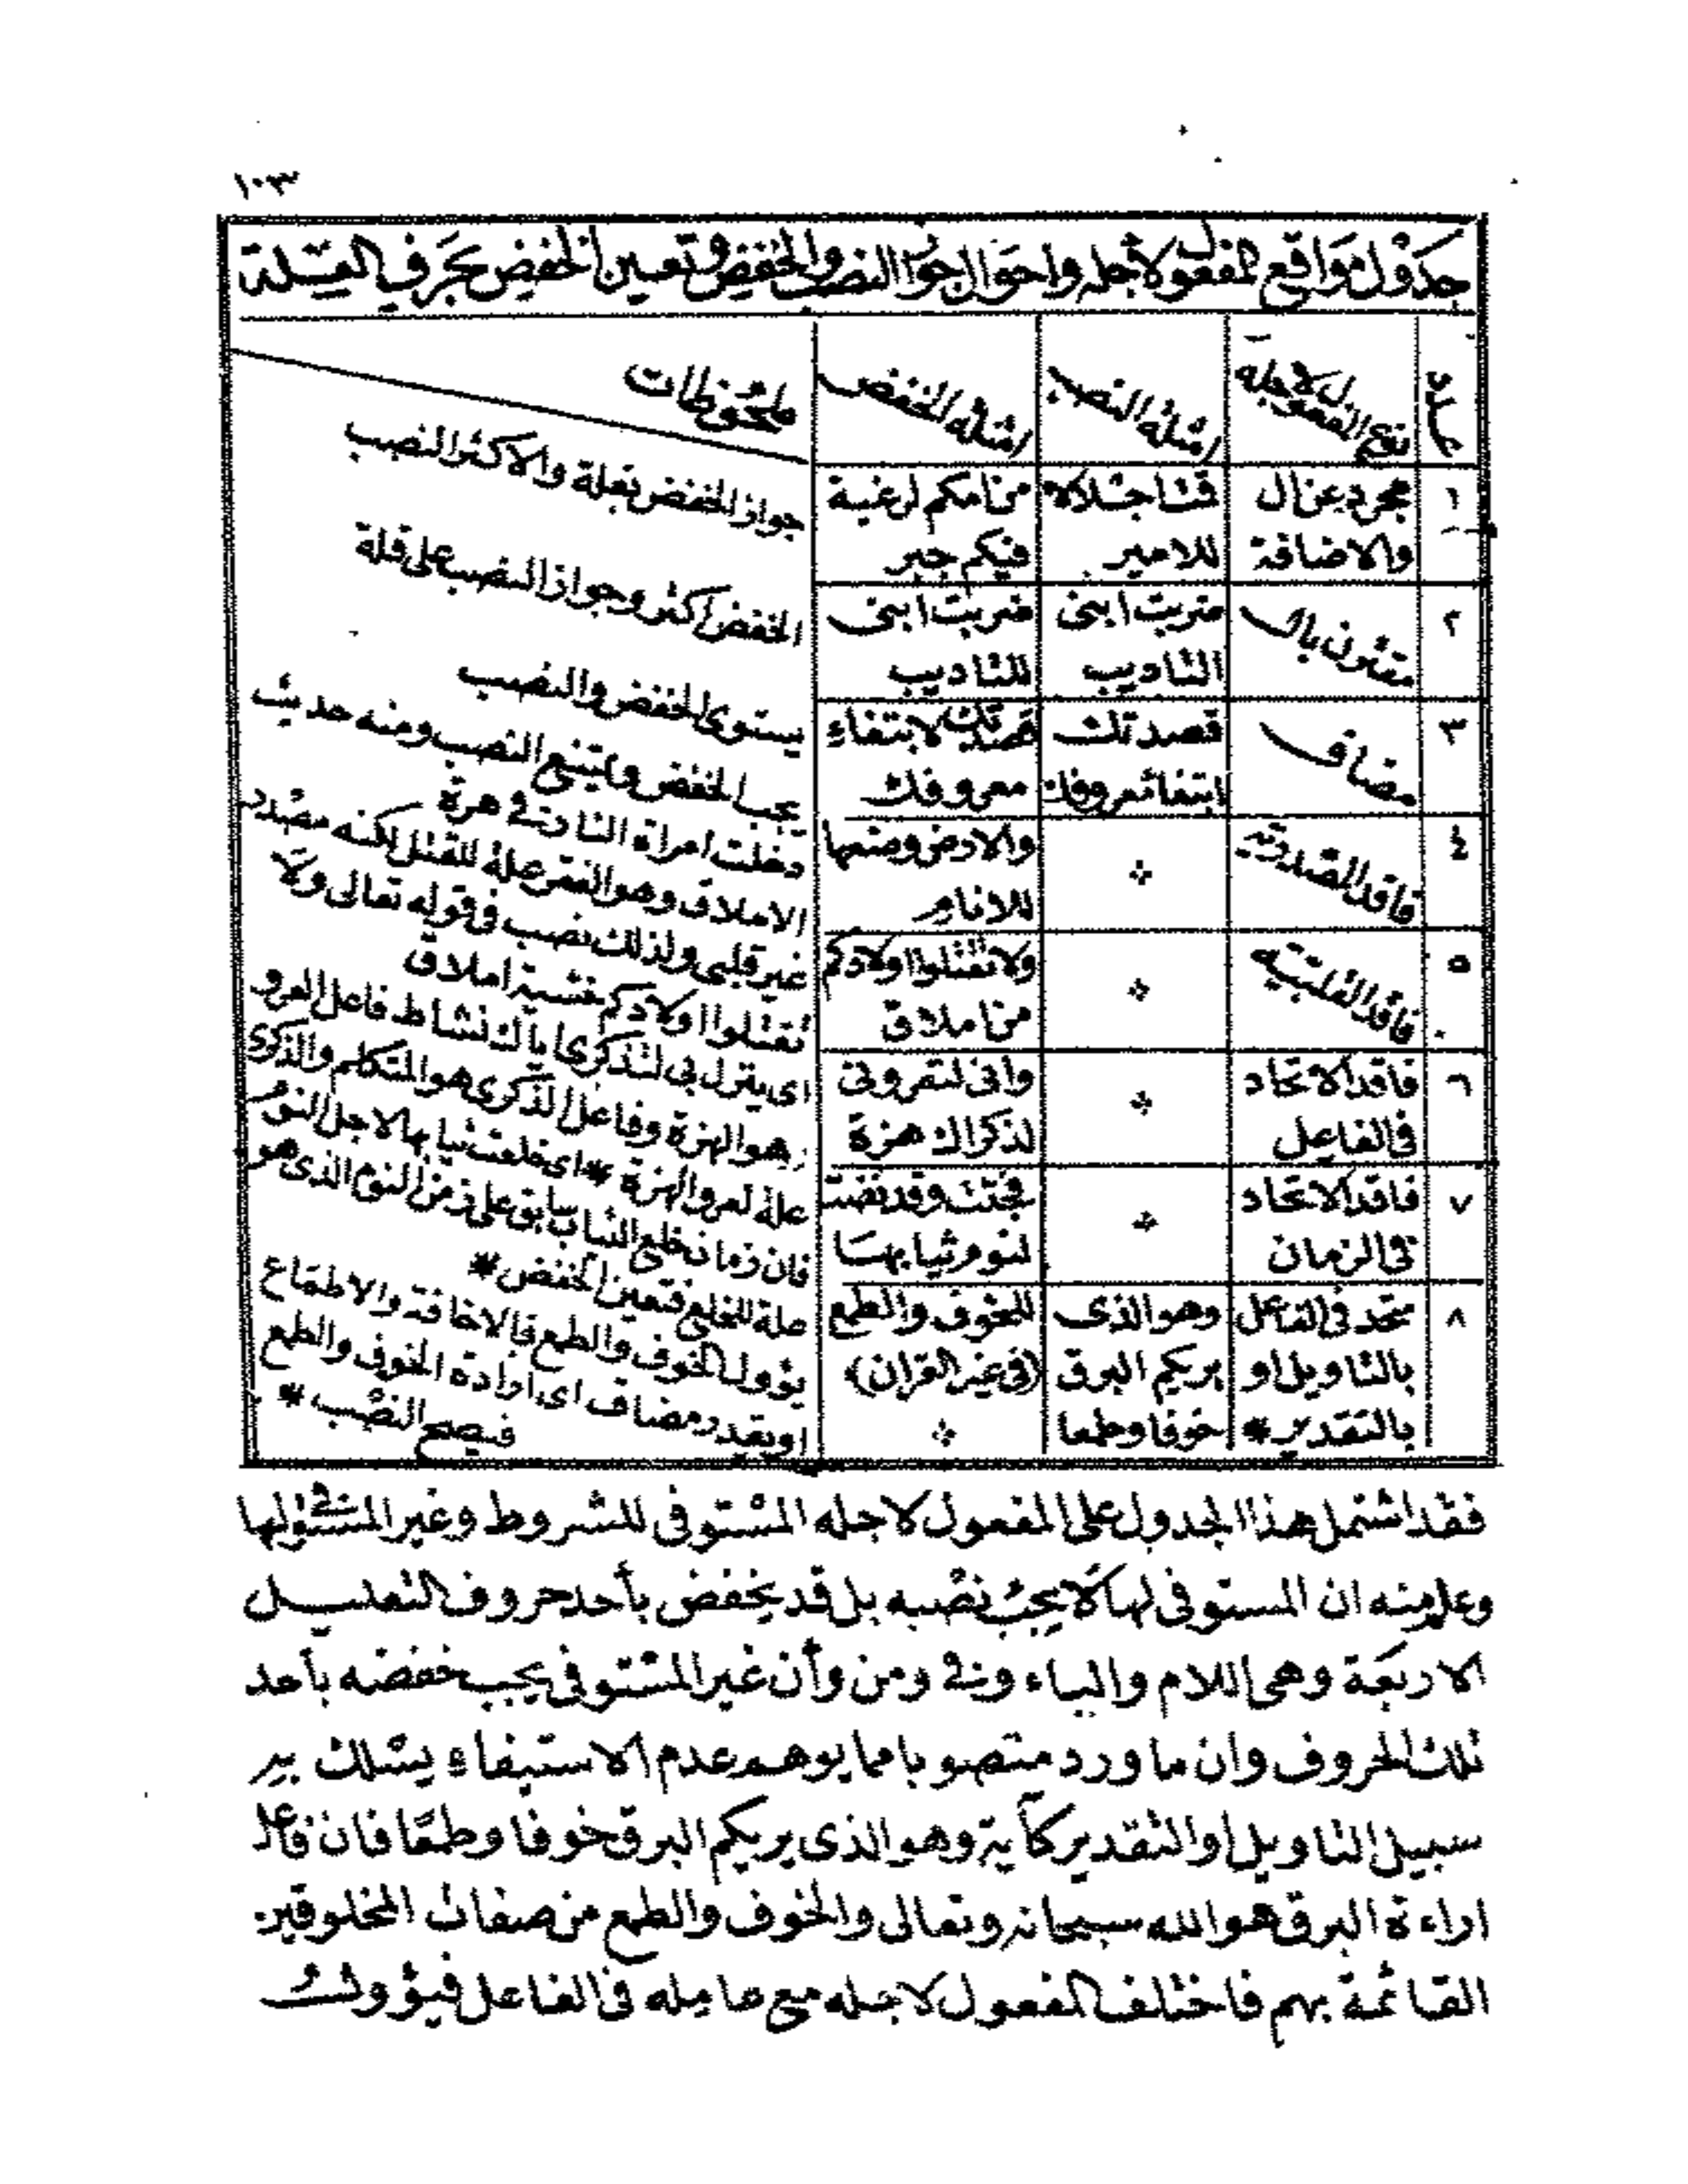 ١٠٣
جدول مواقع المفعول لاجله واحوال جواز النصب والخفض وتعين الخفض بحرف العلة
عدد
نوع المفعول لاجله
امثلة النصب
امثلة الخفض
ملحوظات
١
مجرد عن ال
والاضافة
قمت اجلالا
للامير
من امكم لرغبة
فيكم جبر
جواز الخفض بقلة والاكثر النصب
٢
مقترن بال
ضربت ابنى
التاديب
ضربت ابنى
للتاديب
الخفض اكثر وجواز النصب على قلة
٣
مضاف
قصدتك
ابتغاء معروفك
قصدتك لابتغاء
معروفك
يستوى الخفض والنصب
٤
فاقد المصدرية
والارض وضعها
للانام
يجب الخفض ويمتنع النصب ومنه حديث
دخلت امراة النار فى هرة
٥
فاقد القلبية
ولا تقتلوا اولادكم
من املاق
الاملاق وهو الفقر علة للقتل لكنه مصدر
غير قلبى ولذلك نصب فى قوله تعالى ولا
تقتلوا اولادكم خشية املاق
٦
فاقد الاتحاد
فى الفاعل
وانى لتعرونى
لذكراك هزة
اى ينزل بى لتذكرى اياك نشاط فاعل العرو
هو الهزة وفاعل الذكرى هو المتكلم والذكرى
علة لعرو الهزة *
٧
فاقد الاتحاد
فى الزمان
فجئت وقد نضت
لنوم ثيابها
اى خلعت ثيابها لاجل النوم
فان زمان خلع الثياب سابق على زمن النوم الذى هو
علة للخلع فتعين الخفض *
٨
متحد فى الفاعل
بالتاويل او
بالتقدير *
وهو الذى
يريكم البرق
خوفا وطمعا
للخوف والطمع
(فى غير القران)
يؤول الخوف والطمع بالاخافة والاطماع
او يقدر مضاف اى ارادة الخوف والطمع
فيصح النصب *
فقد اشتمل هذا الجدول على المفعول لاجله المستوفى للشروط وغير المستوفى لها
وعلم منه ان المستوفى لها لا يجب نصبه بل قد يخفض بأحد حروف التعليل
الاربعة وهى اللام والباء وفى ومن وأن غير المستوفى يجب خفضه بأحد
تلك الحروف وان ما ورد منصوبا مما يوهم عدم الاستيفاء يسلك به
سبيل التاويل او التقدير كآية وهو الذى يريكم البرق خوفا وطمعا فان فاعل
اراءة البرق هو الله سبحانه وتعالى والخوف والطمع من صفات المخلوقين
القائمة بهم فاختلف المفعول لاجله مع عامله فى الفاعل فيؤول